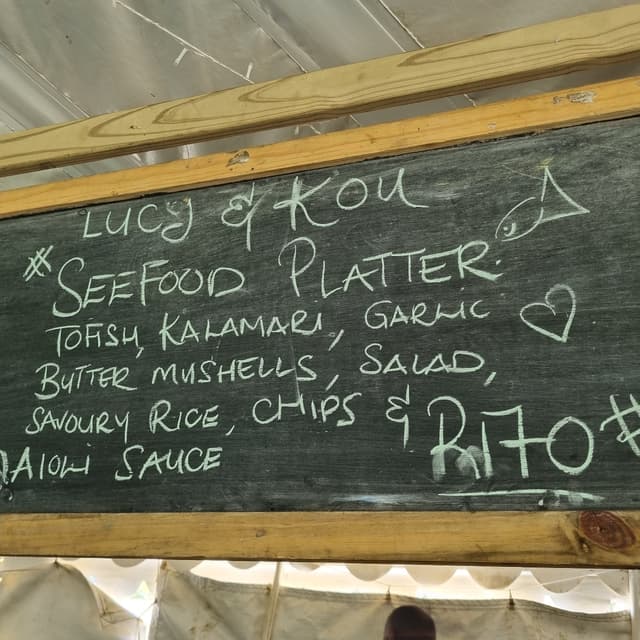 LUCY & KOU
* SEEFOOD PLATTER
TOFISH, KALAMARI, GARLIC
BUTTER MUSHELLS, SALAD,
SAVOURY RICE, CHIPS &
AIOLI SAUCE R170 *